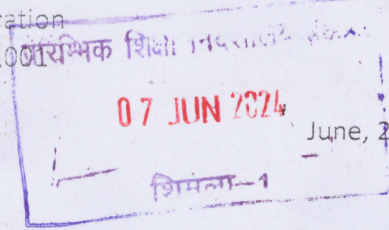 ration
001
प्रारम्भिक शिक्षा
07 JUN 2024
June, 2
शिमला-1